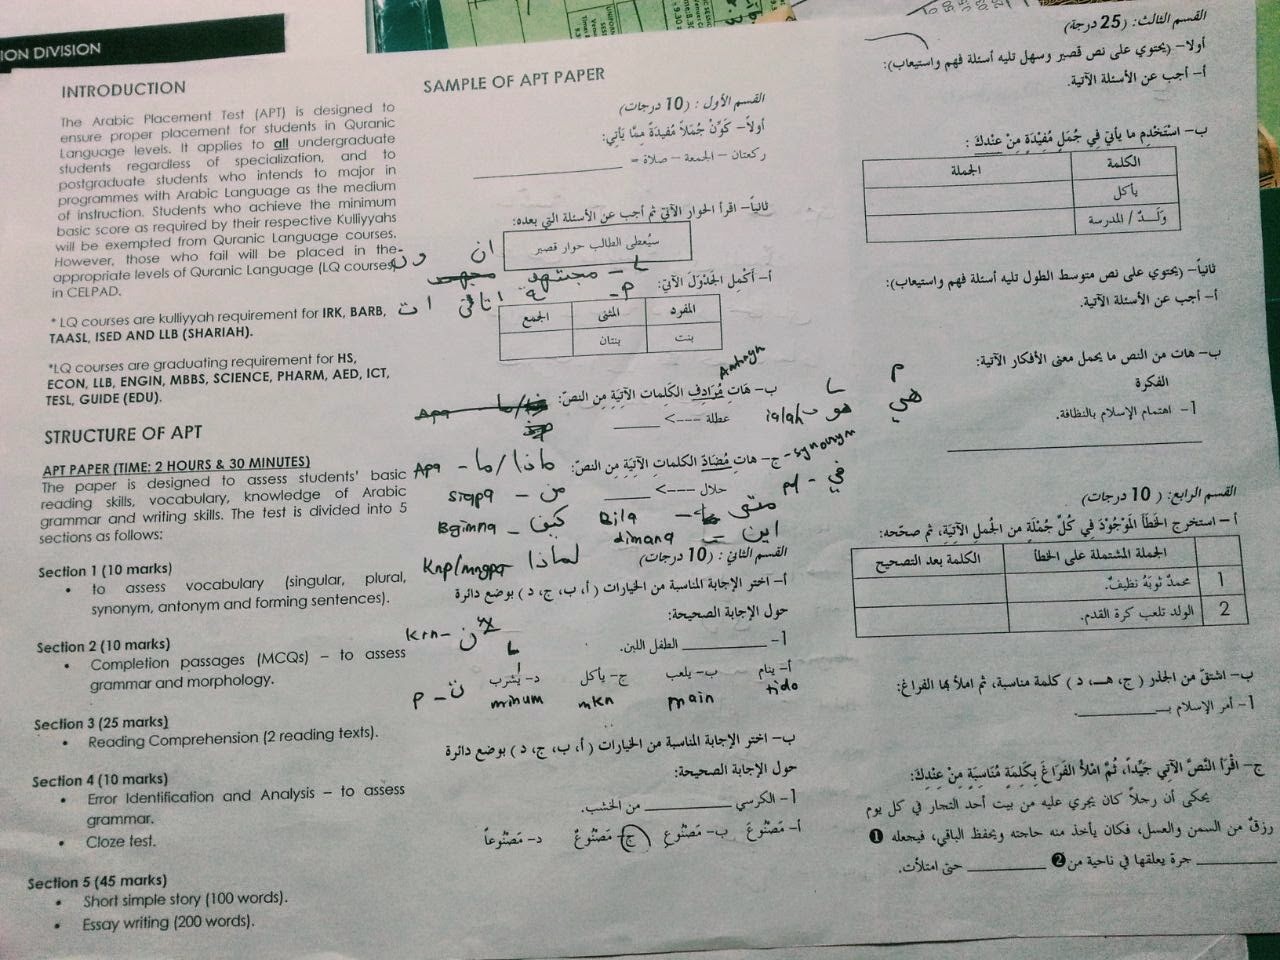 ION DIVISION
INTRODUCTION
The Arabic Placement Test (APT) is designed to
ensure proper placement for students in Quranic
Language levels. It applies to all undergraduate
students regardless of specialization, and to
postgraduate students who intends to major in
programmes with Arabic Language as the medium
of instruction. Students who achieve the minimum
basic score as required by their respective Kulliyyahs
will be exempted from Quranic Language courses.
However, those who fail will be placed in the
appropriate levels of Quranic Language (LQ courses)
in CELPAD.
* LQ courses are kulliyyah requirement for IRK, BARB,
TAASL, ISED AND LLB (SHARIAH).
*LQ courses are graduating requirement for HS,
ECON, LLB, ENGIN, MBBS, SCIENCE, PHARM, AED, ICT,
TESL, GUIDE (EDU).
STRUCTURE OF APT
APT PAPER (TIME: 2 HOURS & 30 MINUTES)
The paper is designed to assess students' basic
reading skills, vocabulary, knowledge of Arabic
grammar and writing skills. The test is divided into 5
sections as follows:
Section 1 (10 marks)
• to assess vocabulary (singular, plural,
synonym, antonym and forming sentences).
Section 2 (10 marks)
• Completion passages (MCQs) – to assess
grammar and morphology.
Section 3 (25 marks)
• Reading Comprehension (2 reading texts).
Section 4 (10 marks)
• Error Identification and Analysis – to assess
grammar.
• Cloze test.
Section 5 (45 marks)
• Short simple story (100 words).
• Essay writing (200 words).
SAMPLE OF APT PAPER
القسم الأول : (10 درجات)
أولاً- كَوِّنْ جُمَلاً مُفيدَةً مِمَّا يَأْتِي:
ركعتان – الجمعة – صلاة = ____________
ثانياً- اقرأ الحوار الآتي ثم أجب عن الأسئلة التي بعده:
سيُعطى الطالب حوار قصير
ان ون
L – مجتهد
P – ة اتان ات
أ- أَكْمِل الجَدْوَلَ الآتِيَ:
المفرد المثنى الجمع
بنت بنتان
Antonym
ب- هَاتِ مُرَادِفِ الكَلِمات الآتِيَةِ مِن النصّ:
عطلة ---> ______
L P
هو ialah هي
synonym
ج- هاتِ مُضَادَّ الكلماتِ الآتِيَةِ مِن النصّ:
حلال ---> ______
Apa – ماذا/ما
siapa – من
pd – في
Bila – متى
Bgimna – كيف
dimana – اين
knp/mngpa لماذا
القسم الثاني : (10 درجات)
أ- اختر الإجابة المناسبة من الخيارات ( أ، ب، ج، د ) بوضع دائرة
حول الإجابة الصحيحة:
krn – لأن
1- ____________ الطفل اللبن.
L
أ- ينام ب- يلعب ج- يأكل د- يشرب
tido main mkn minum
P – ت
ب- اختر الإجابة المناسبة من الخيارات ( أ، ب، ج، د ) بوضع دائرة
حول الإجابة الصحيحة:
1- الكرسي ____________ من الخشب.
أ- مَصْنُوعَ ب- مَصْنُوعِ ج- مَصْنُوعٌ د- مَصْنُوعاً
القسم الثالث: (25 درجة)
أولا- (يحتوي على نص قصير وسهل تليه أسئلة فهم واستيعاب):
أ- أجب عن الأسئلة الآتية.
ب- اسْتَخْدِم ما يأتي فِي جُمَلٍ مُفِيْدَةٍ مِنْ عِنْدِكَ :
الكلمة الجملة
يأكل
وَلَــدٌ / المدرسة
ثانياً- (يحتوي على نص متوسط الطول تليه أسئلة فهم واستيعاب):
أ- أجب عن الأسئلة الآتية.
ب- هات من النص ما يحمل معنى الأفكار الآتية:
الفكرة
1- اهتمام الإسلام بالنظافة.
القسم الرابع: ( 10 درجات)
أ – استخرج الخَطَأَ المَوْجُوْدَ فِي كُلِّ جُمْلَةٍ من الجُملِ الآتِيَةِ، ثم صحّحه:
الجملة المشتملة على الخطأ الكلمة بعد التصحيح
1 محمدٌ ثوبَهُ نظيفٌ.
2 الولد تلعب كرة القدم.
ب- اشتقّ من الجذر ( ج، هـ، د ) كلمة مناسبة، ثم املأ بها الفراغ:
1- أمر الإسلام بـ__________.
ج- اقْرَأ النَّصَّ الآتِي جَيِّداً، ثُمَّ امْلَأ الفَرَاغَ بِكَلِمَةٍ مُنَاسِبَةٍ مِنْ عِنْدِكَ:
يحكى أن رجلاً كان يجري عليه من بيت أحد التجار في كل يوم
رزقٌ من السمن والعسل، فكان يأخذ منه حاجته ويحفظ الباقي، فيجعله ❶
__________ جرة يعلقها في ناحية من❷ __________ حتى امتلأت.